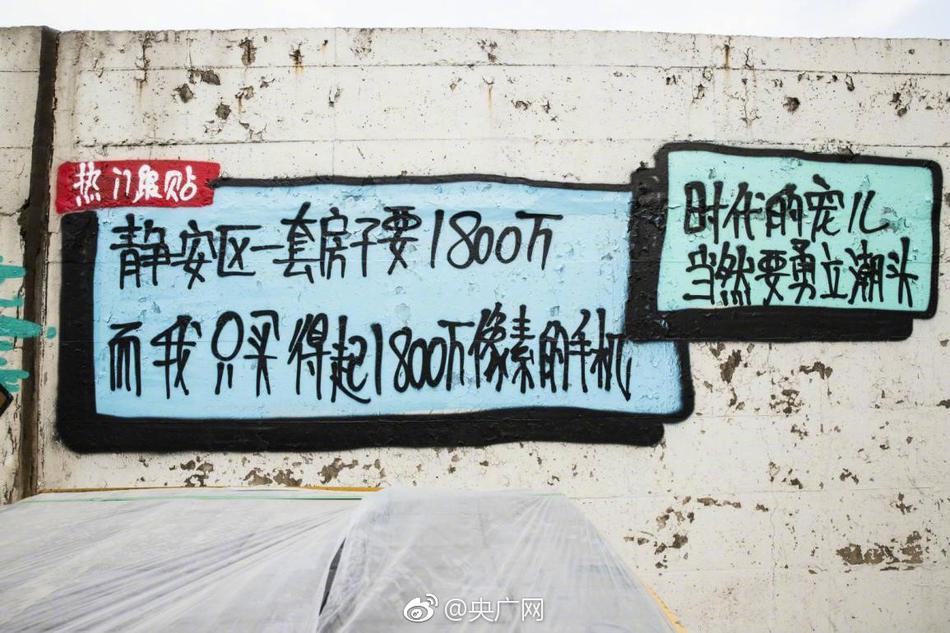 热门跟贴
静安区一套房子要1800万
而我只买得起1800万像素的手机
时代的宠儿
当然要勇立潮头
@央广网